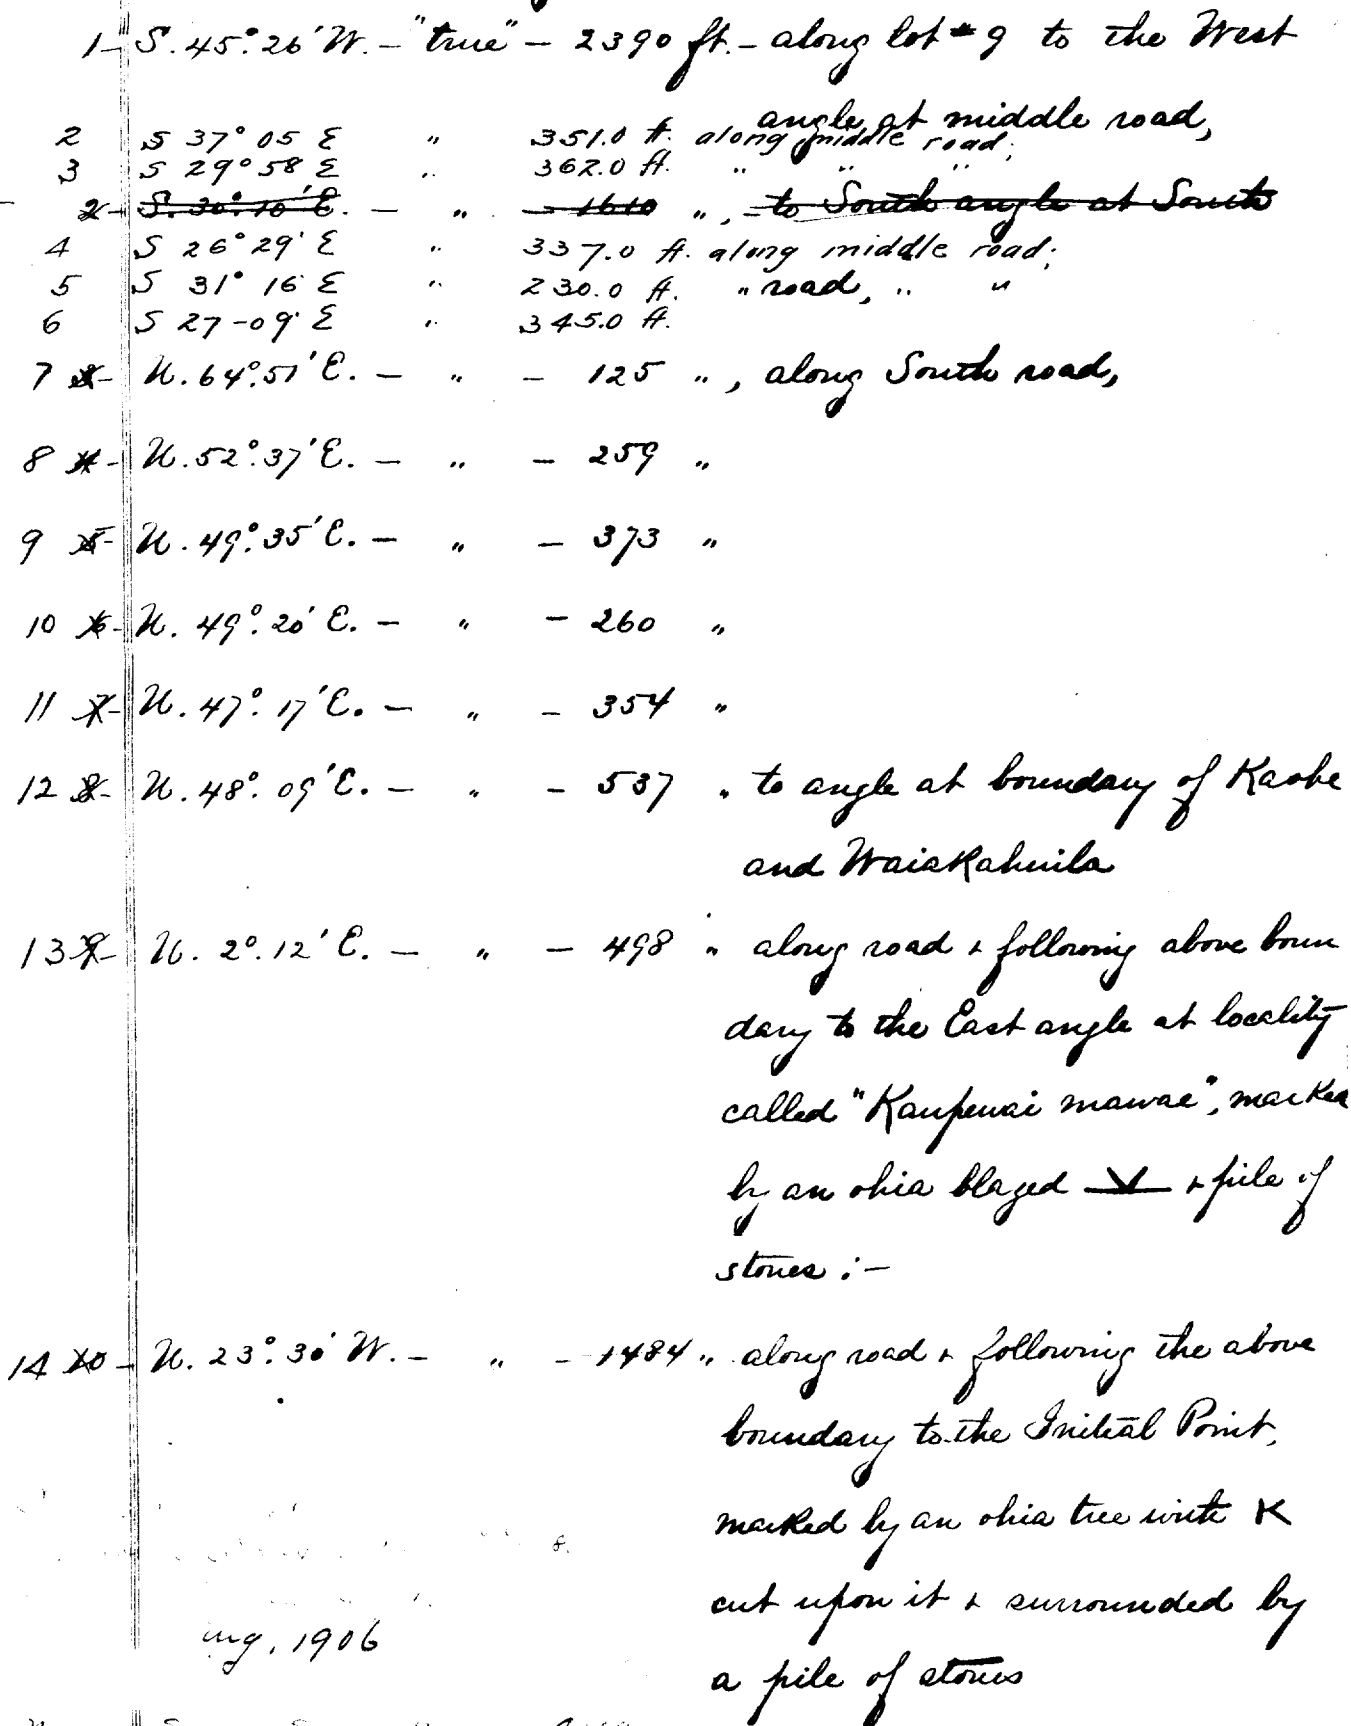 1- S. 45°. 26' W. - "true" - 2390 ft. - along lot #9 to the West
angle at middle road,
2 S 37° 05 E " 351.0 ft. along middle road;
3 S 29° 58 E " 362.0 ft. " " "
2- S. 30°. 10' E. - " - 1610 ", - to South angle at South
4 S 26° 29' E " 337.0 ft. along middle road;
5 S 31° 16 E " 230.0 ft. " road, " "
6 S 27-09' E " 345.0 ft.
7 3- N. 64°. 51' E. - " - 125 ", along South road,
8 4- N. 52°. 37' E. - " - 259 "
9 5- N. 49°. 35' E. - " - 373 "
10 6- N. 49°. 20' E. - " - 260 "
11 7- N. 47°. 17' E. - " - 354 "
12 8- N. 48°. 09' E. - " - 537 " to angle at boundary of Kaohe
and Waiakahiula
13 9- N. 2°. 12' E. - " - 498 " along road + following above boun
dary to the East angle at locality
called "Kaupewai mawae", marked
by an ohia blazed + pile of
stones :-
14 10 - N. 23°. 30' W. - " - 1484 " along road + following the above
boundary to the Initial Point,
marked by an ohia tree with K
cut upon it + surrounded by
a pile of stones
1906